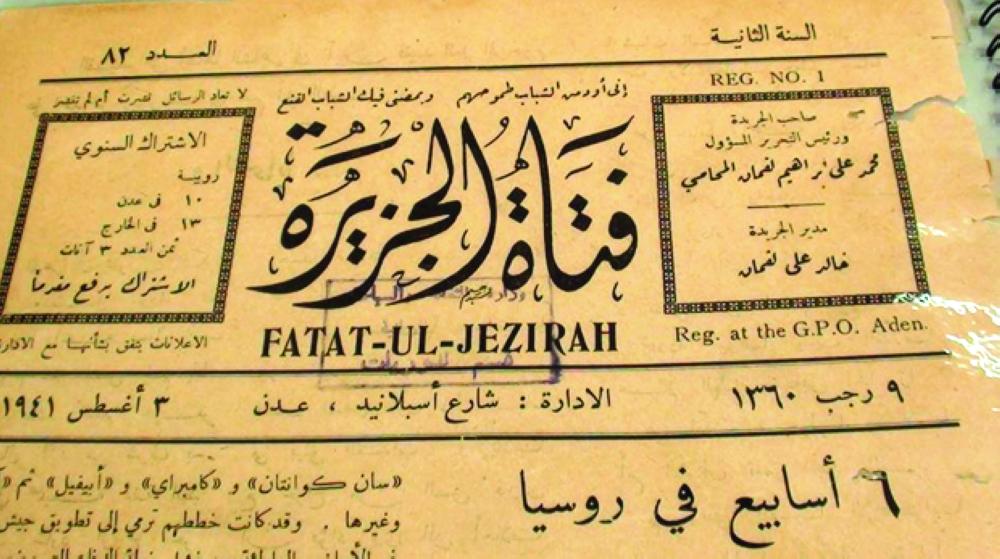 السنة الثانية
العدد ٨٢
REG. NO. 1
صاحب الجريدة
ورئيس التحرير المسؤول
محمد علي إبراهيم لقمان المحامي
مدير الجريدة
خالد علي لقمان
Reg. at the G.P.O. Aden.
إني أود من الشباب طموحهم ويمضني فيك الشباب القنع
فتاة الجزيرة
FATAT-UL-JEZIRAH
لا تعاد الرسائل نشرت أم لم تنشر
الاشتراك السنوي
روبية
١٠ في عدن
١٣ في الخارج
ثمن العدد ٣ آنات
الاشتراك يدفع مقدماً
الاعلانات يتفق بشأنها مع الادارة
٩ رجب ١٣٦٠
الادارة : شارع أسبلانيد ، عدن
٣ أغسطس ١٩٤١
٦ أسابيع في روسيا
«سان كوانتان» و «كامبراي» و «أبيفيل» ثم
وغيرها . وقد كانت خططهم ترمي إلى تطويق جيش